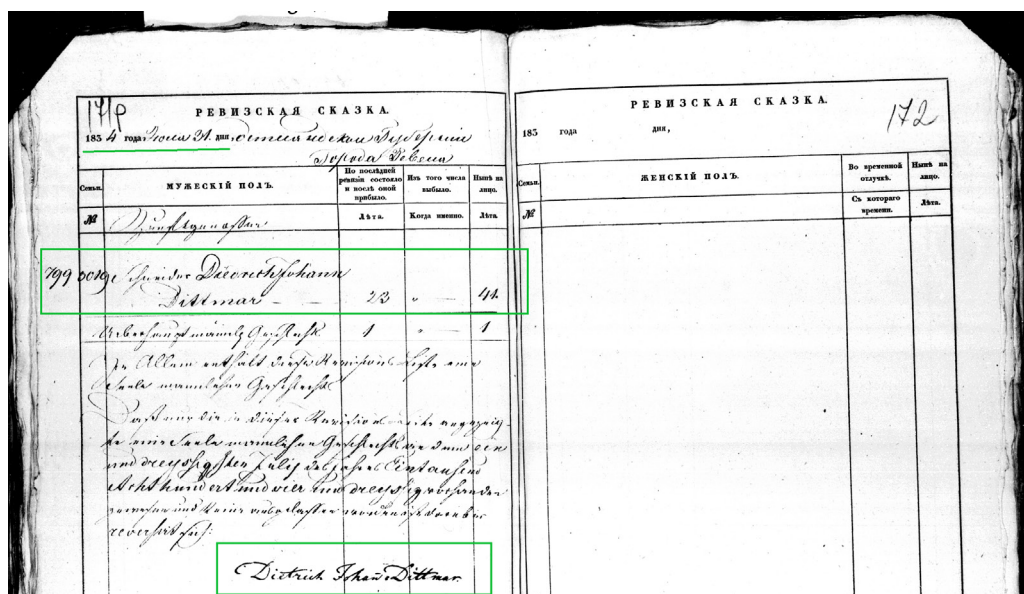 171p
РЕВИЗСКАЯ СКАЗКА.
1834 года Июля 31. дня, Эстляндской Губернии
Города Ревеля
Семьи.
МУЖЕСКІЙ ПОЛЪ.
По послѣдней ревизіи состояло и послѣ оной прибыло.
Изъ того числа выбыло.
Нынѣ на лицо.
№
Лѣта.
Когда именно.
Лѣта.
Zunftgenossen
799 Schneider Diedrich Johann
Dittmar - - - 23 " - 41.
Ueberhaupt männl. Geschlechts 1 " - 1
In Allem enthält diese Revisions Liste eine
Seele männlichen Geschlechts
Daß nur die in dieser Revisions angezeig-
te eine Seele männlichen Geschlechts an dem ein
und dreyssigsten July des Jahres Eintausend
Achthundert und vier und dreyssig vorhanden
gewesen und keine ausgelassen worden ist
reversirt sich:
Dietrich Johan Dittmar
172
РЕВИЗСКАЯ СКАЗКА.
183 года дня,
Семьи.
ЖЕНСКІЙ ПОЛЪ.
Во временной отлучкѣ.
Нынѣ на лицо.
№
Съ котораго времени.
Лѣта.